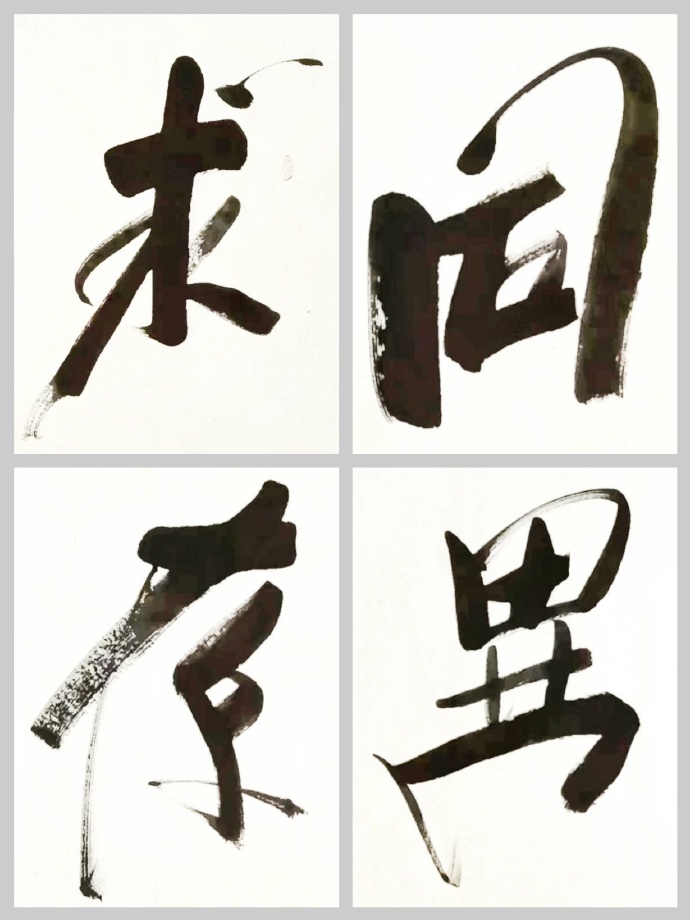 求同
存異